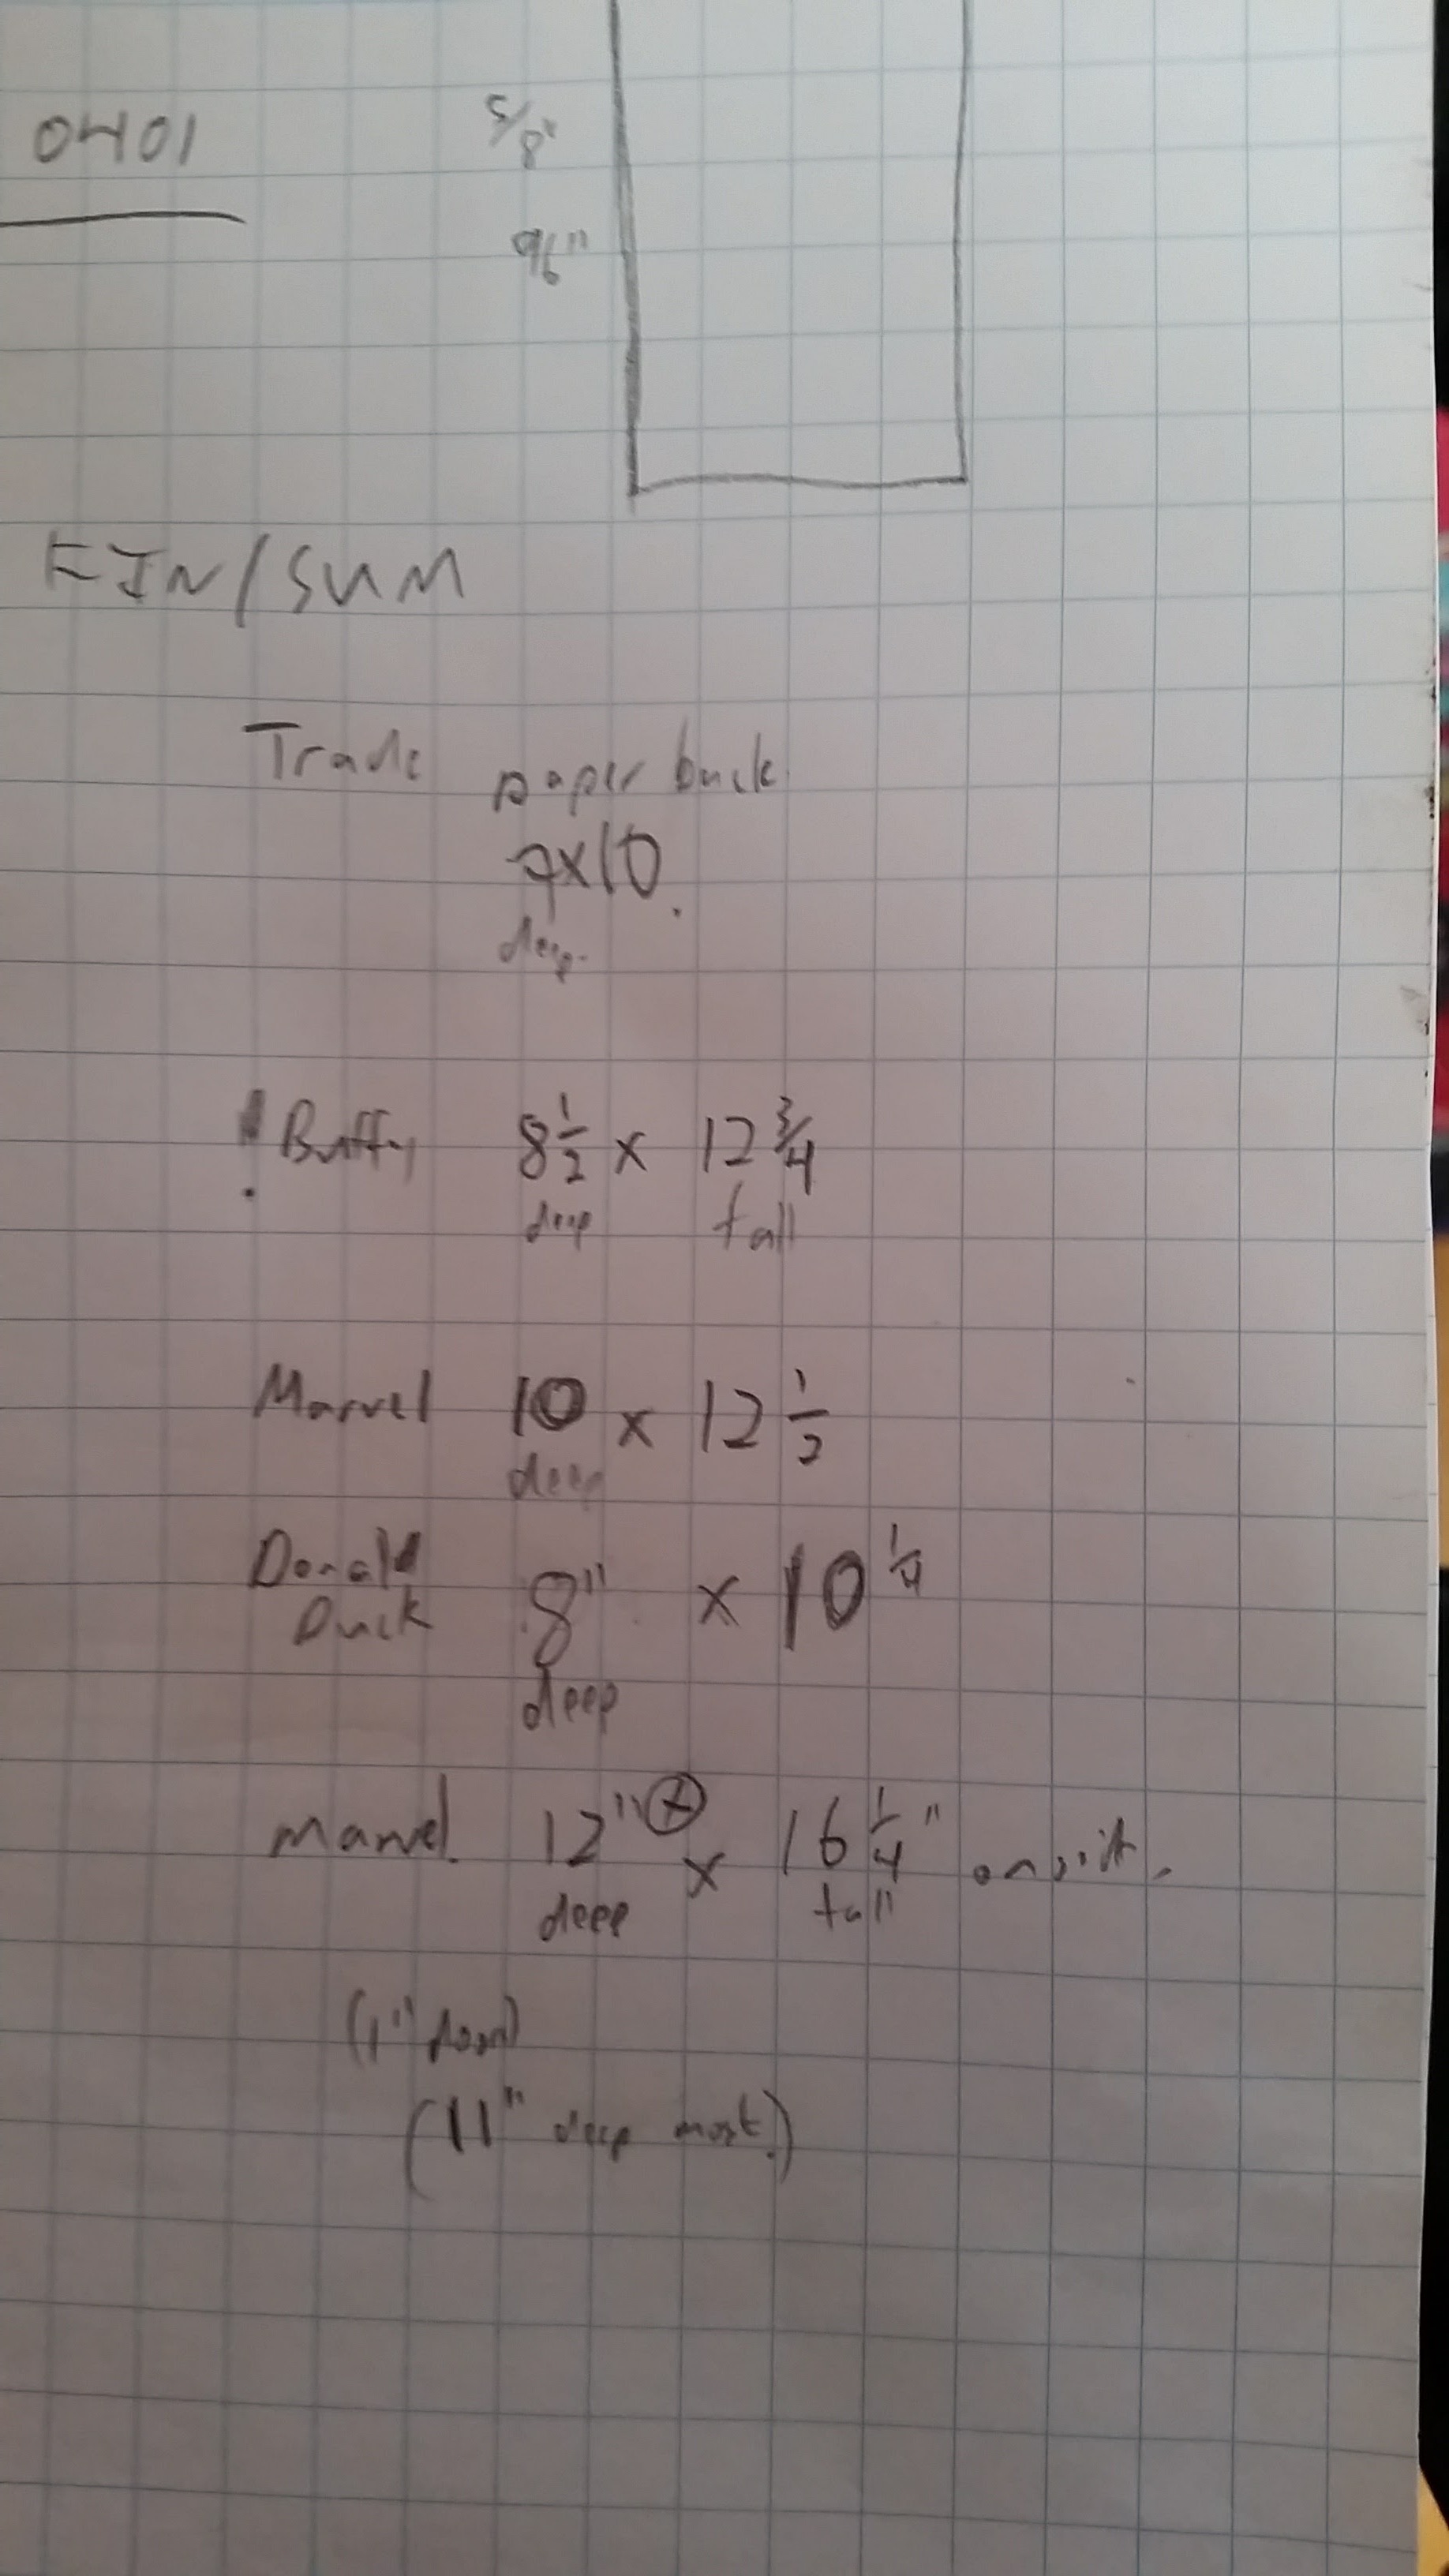 0401
5/8"
96"
FIN/SUM
Trade paper back
7x10.
deep.
! Buffy 8 1/2 x 12 3/4
deep tall
Marvel 10 x 12 1/2
deep
Donald
Duck 8" x 10 1/4
deep
Marvel. 12" x 16 1/4"
deep tall
(1" door)
(11" deep most.)